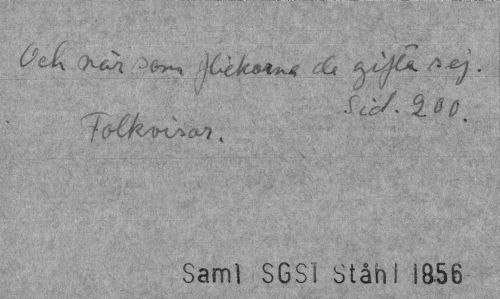 Och när som flickorna de gifta sej.
Sid. 200.
Folkvisor.
Saml SGS1 Ståhl 1856